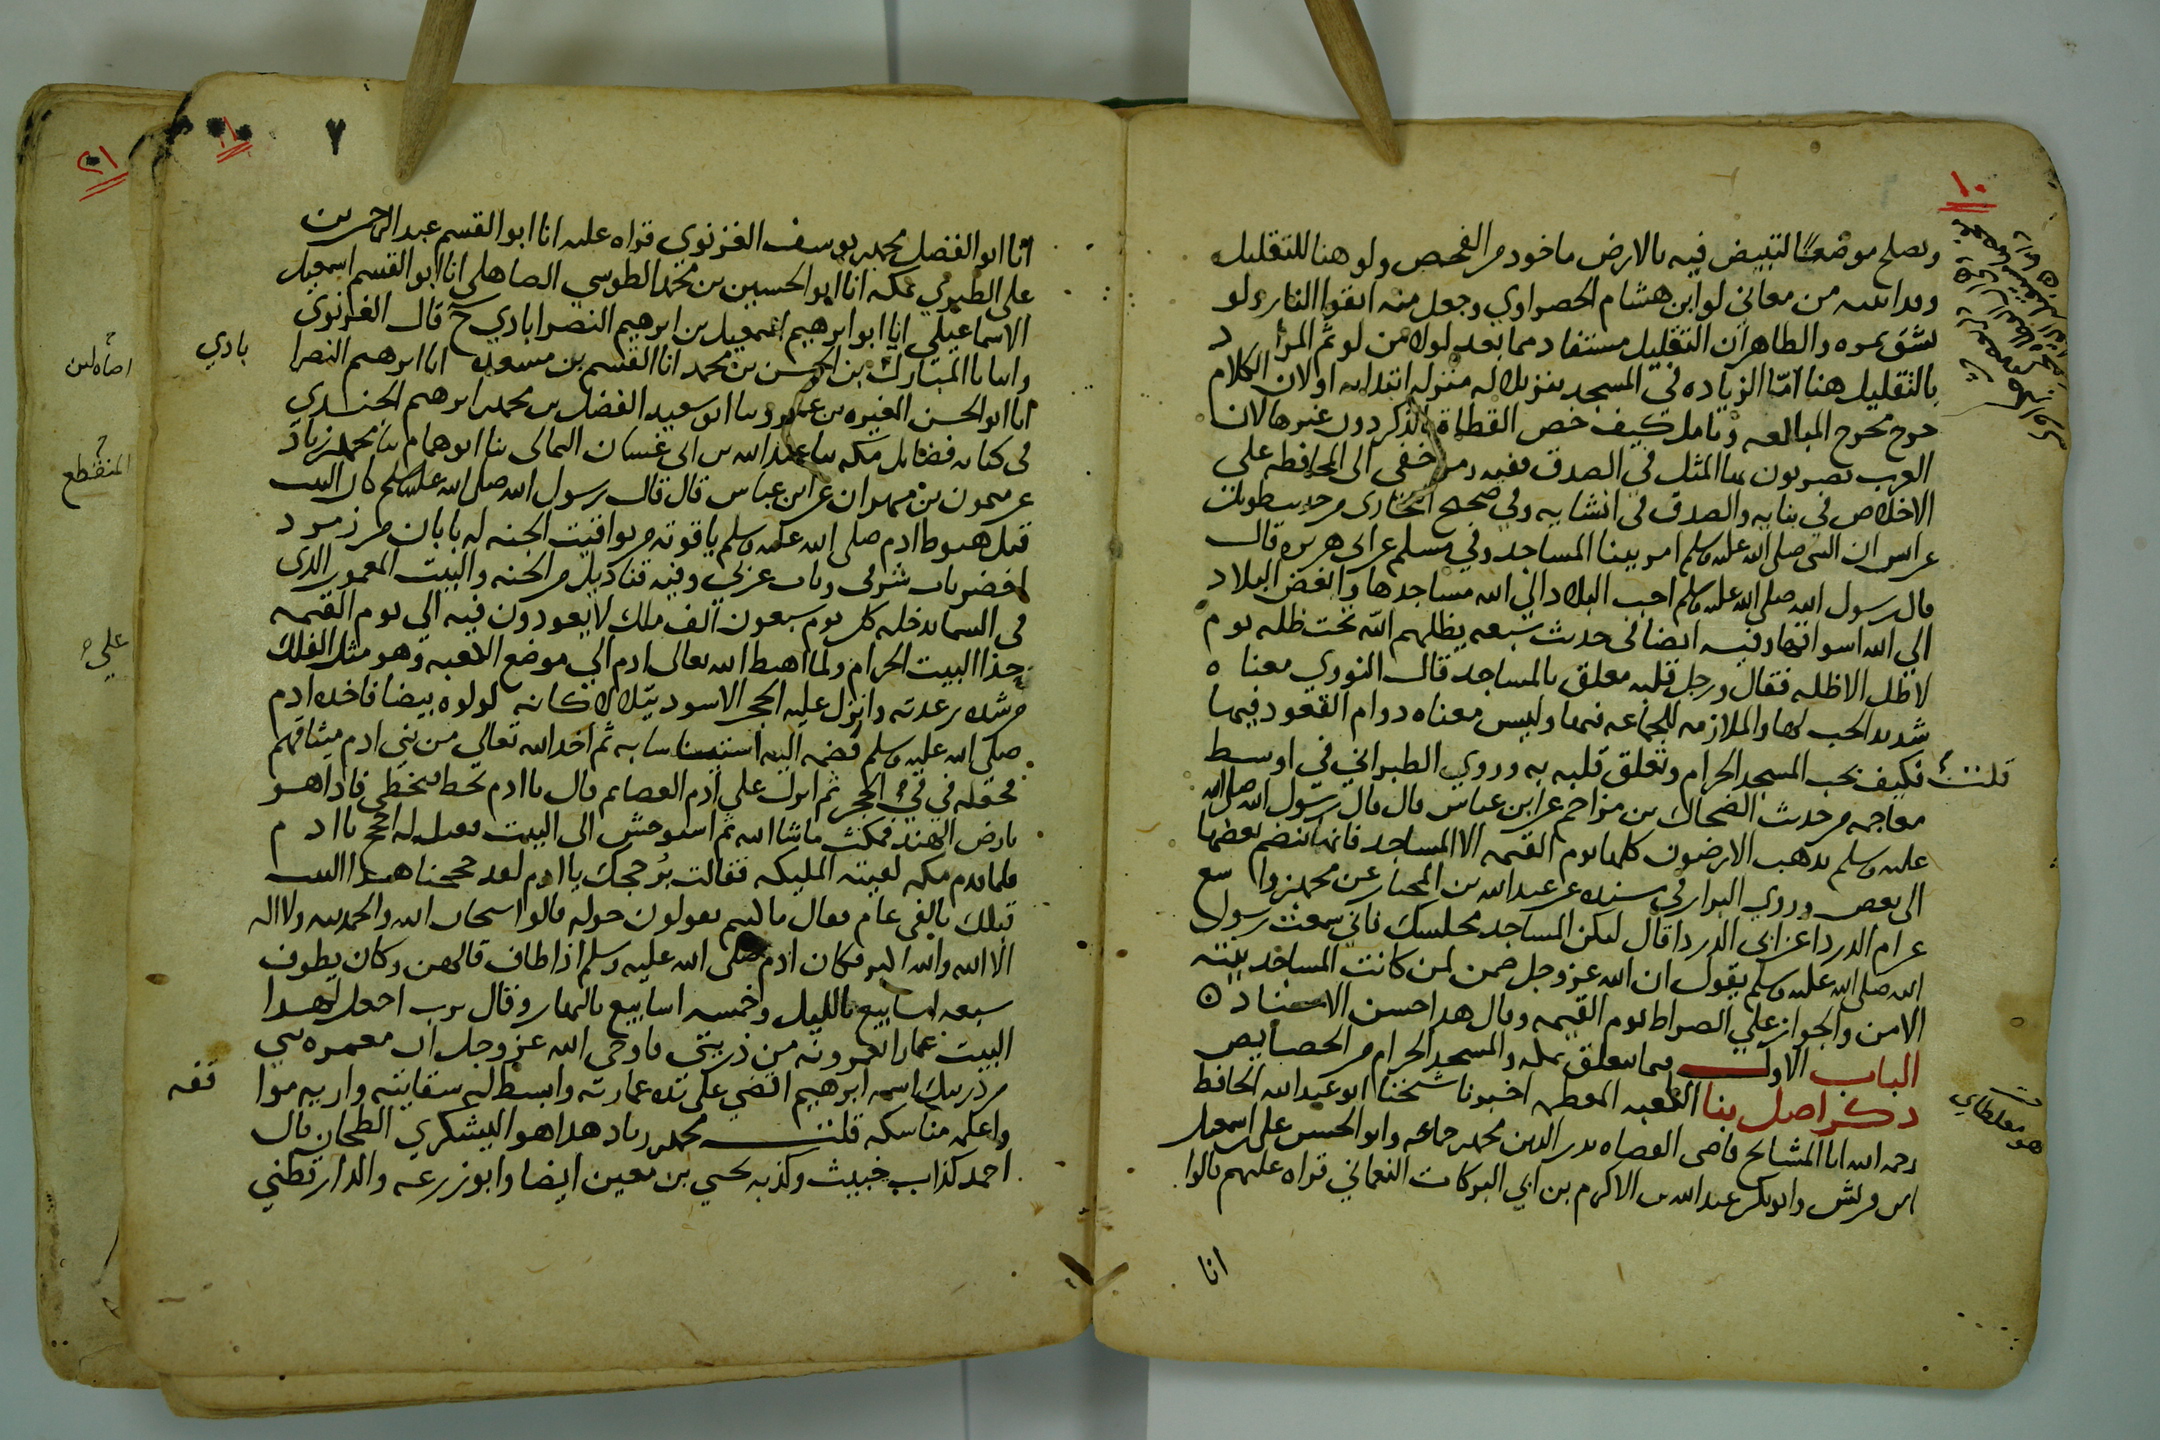 ١٠
ويصلح موضعًا للتبييض فيه بالارض ماخوذ من الفحص ولو هنا للتقليل
من معاني لو ابن هشام الخضراوي وجعل منه اتقوا النار ولو
بشق تمره والظاهر ان التقليل مستفاد مما بعد لولا من لو ثم المراد
بالتقليل هنا امّا الزياده في المسجد بتنزيلها له منزله ابتدايه او لان الكلام
خرج مخرج المبالغه وتامل كيف خص القطاة بالذكر دون غيرها لان
العرب يضربون بها المثل في الصدق ففيه رمز خفي الى المحافظه على
الاخلاص في بنايه والصدق في انشايه وفي صحيح البخاري من حديث طويل
عن انس ان النبي صلى الله عليه وسلم امر ببنا المساجد وفي مسلم عن ابي هريره قال
قال رسول الله صلى الله عليه وسلم احب البلاد الي الله مساجدها وابغض البلاد
الي الله اسواقها وفيه ايضا في حديث سبعه يظلهم الله تحت ظله يوم
لا ظل الا ظله فقال ورجل قلبه معلق بالمساجد قال النووي معناه
شديد الحب لها والملازمه للجماعه فيها وليس معناه دوام القعود فيها
قلت فكيف بحب المسجد الحرام وتعلق قلبه به وروي الطبراني في اوسط
معاجمه من حديث الضحاك بن مزاحم عن ابن عباس قال قال رسول الله صلى الله
عليه وسلم تذهب الارضون كلها يوم القيمه الا المساجد فانها تنضم بعضها
الى بعض وروي البزار في مسنده عن عبد الله بن المختار عن محمد بن واسع
عن ام الدردا عن ابي الدردا قال ليكن المساجد مجلسك فاني سمعت رسول
الله صلى الله عليه وسلم يقول ان الله عز وجل ضمن لمن كانت المساجد بيته
الامن والجواز على الصراط يوم القيمه وقال هذا احسن الاسناد
الباب الاول فيما يتعلق بمكه والمسجد الحرام من الخصايص
ذكر اصل بنا الكعبه المعظمه اخبرنا شيخنا ابو عبد الله الحافظ
رحمه الله انا المشايخ قاضي القضاه بدر الدين محمد بن جماعه وابو الحسن علي بن اسمعيل
ابن قريش وابو بكر عبد الله بن الاكرم بن ابي البركات النعماني قراه عليهم قالوا
انا
هو مغلطاي
٧
انا ابو الفضل محمد بن يوسف الغزنوي قراه عليه انا ابو القسم عبد الرحمن بن
علي الطبري بمكه انا ابو الحسين بن محمد الطوسي الصاهلي انا ابو القسم اسمعيل
الاسماعيلي انا ابو ابرهيم اسمعيل بن ابرهيم النصراباذي ح قال الغزنوي
وانبانا المبارك بن الحسن بن محمد انا القسم بن مسعده انا ابرهيم النصرا
باذي
انا ابو الحسن المغيره بن عمرو ثنا ابو سعيد الفضل بن محمد بن ابرهيم الجندي
في كتابه فضايل مكه ثنا عبد الله بن ابي غسان اليماني ثنا ابو همام ثنا محمد بن زياد
عن ميمون بن مهران عن ابن عباس قال قال رسول الله صلى الله عليه وسلم كان البيت
قبل هبوط ادم صلى الله عليه وسلم ياقوته من يواقيت الجنه له بابان من زمرد
اخضر باب شرقي وباب غربي وفيه قناديل من الجنه والبيت المعمور الذي
في السما يدخله كل يوم سبعون الف ملك لا يعودون فيه الي يوم القيمه
حذا البيت الحرام ولما اهبط الله تعالى ادم الي موضع الكعبه وهو مثل الفلك
من شده رعدته وانزل عليه الحجر الاسود يتلالا كانه لولوه بيضا فاخذه ادم
صلى الله عليه وسلم فضمه اليه استيناسا به ثم اخذ الله تعالي من بني ادم ميثاقهم
فجعله في الحجر ثم انزل علي ادم العصا ثم قال يا ادم تخط فتخطى فاذا هو
بارض الهند فمكث ماشا الله ثم استوحش الى البيت فقيل له احجج يا ادم
فلما قدم مكه لقيته المليكه فقالت بُرّ حجك يا ادم لقد حججنا هذا البيت
قبلك بالفي عام فقال ما كنتم تقولون حوله قالوا سبحان الله والحمد لله ولا اله
الا الله والله اكبر فكان ادم صلى الله عليه وسلم اذا طاف قالهن وكان يطوف
سبعه اسابيع بالليل وخمسه اسابيع بالنهار وقال يرب اجعل لهذا
البيت عمارا يعمرونه من ذريتي فاوحى الله عز وجل اني معمره نبي
من ذريتك اسمه ابرهيم اقضي على يده عمارته وابسط له سقايته واريه موا
قفه
واعلمه مناسكه قلت محمد بن زياد هذا هو اليشكري الطحان قال
احمد كذاب خبيث وكذبه يحيى بن معين ايضا وابو زرعه والدارقطني
٢١
المنقطع
علي